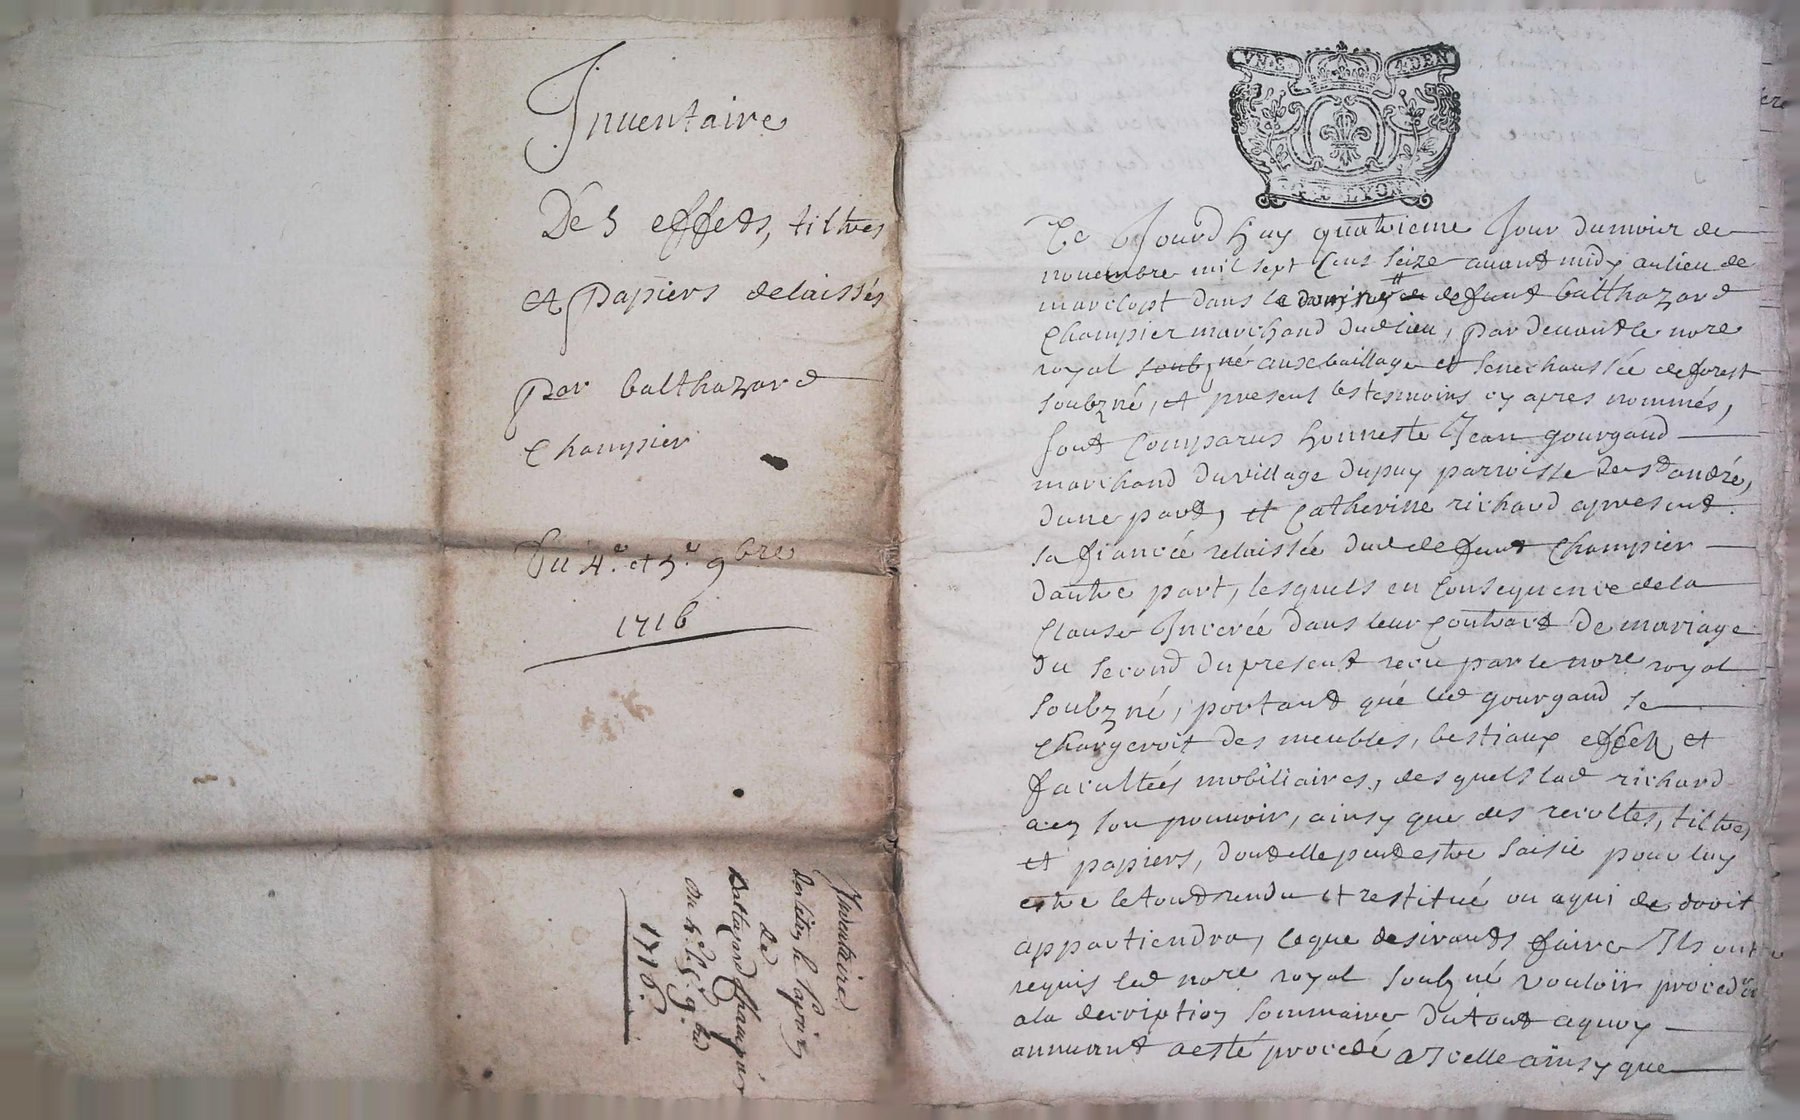 Inventaire
Des effets, tiltres
et papiers delaissés
par balthazard
Champier
Du 4.e et 5.e 9bre
1716
Inventaire
des
Baltazard Champier
du 4 et 5 9bre
1716.
UN.S. 4.DEN
G. DE LYON
Ce Jourd huy quatrieme Jour du mois de
novembre mil sept Cens seize avant midy au lieu de
marclopt dans le domine de defunt balthazard
Champier marchand dud lieu, par devant le nore
royal soubzné aux baillage et senechaussée de forest
soubzné, et presens les tesmoins cy apres nommés,
sont Comparus honneste Jean gourgaud
marchand du village du puy parroisse de st andré,
dune part, et Catherine richard apresent
sa fiancée relaissée dud defunt Champier
dautre part, lesquels en Consequence de la
Clause Incerée dans leur Contract de mariage
du second du present receu par le nore royal
soubzné, portant que led gourgaud se
Chargeroit des meubles, bestiaux effets et
facultés mobiliaires, desquels lad richard
a en son pouvoir, ainsy que des recoltes, tiltres
et papiers, dont elle peut estre saisie pour luy
estre le tout rendu et restitué ou a qui de droit
appartiendra, ce que desirants faire Ils ont
requis led nore royal soubzné vouloir proceder
a la description sommaire du tout a quoy
annuant a esté procedé a Icelle ainsy que